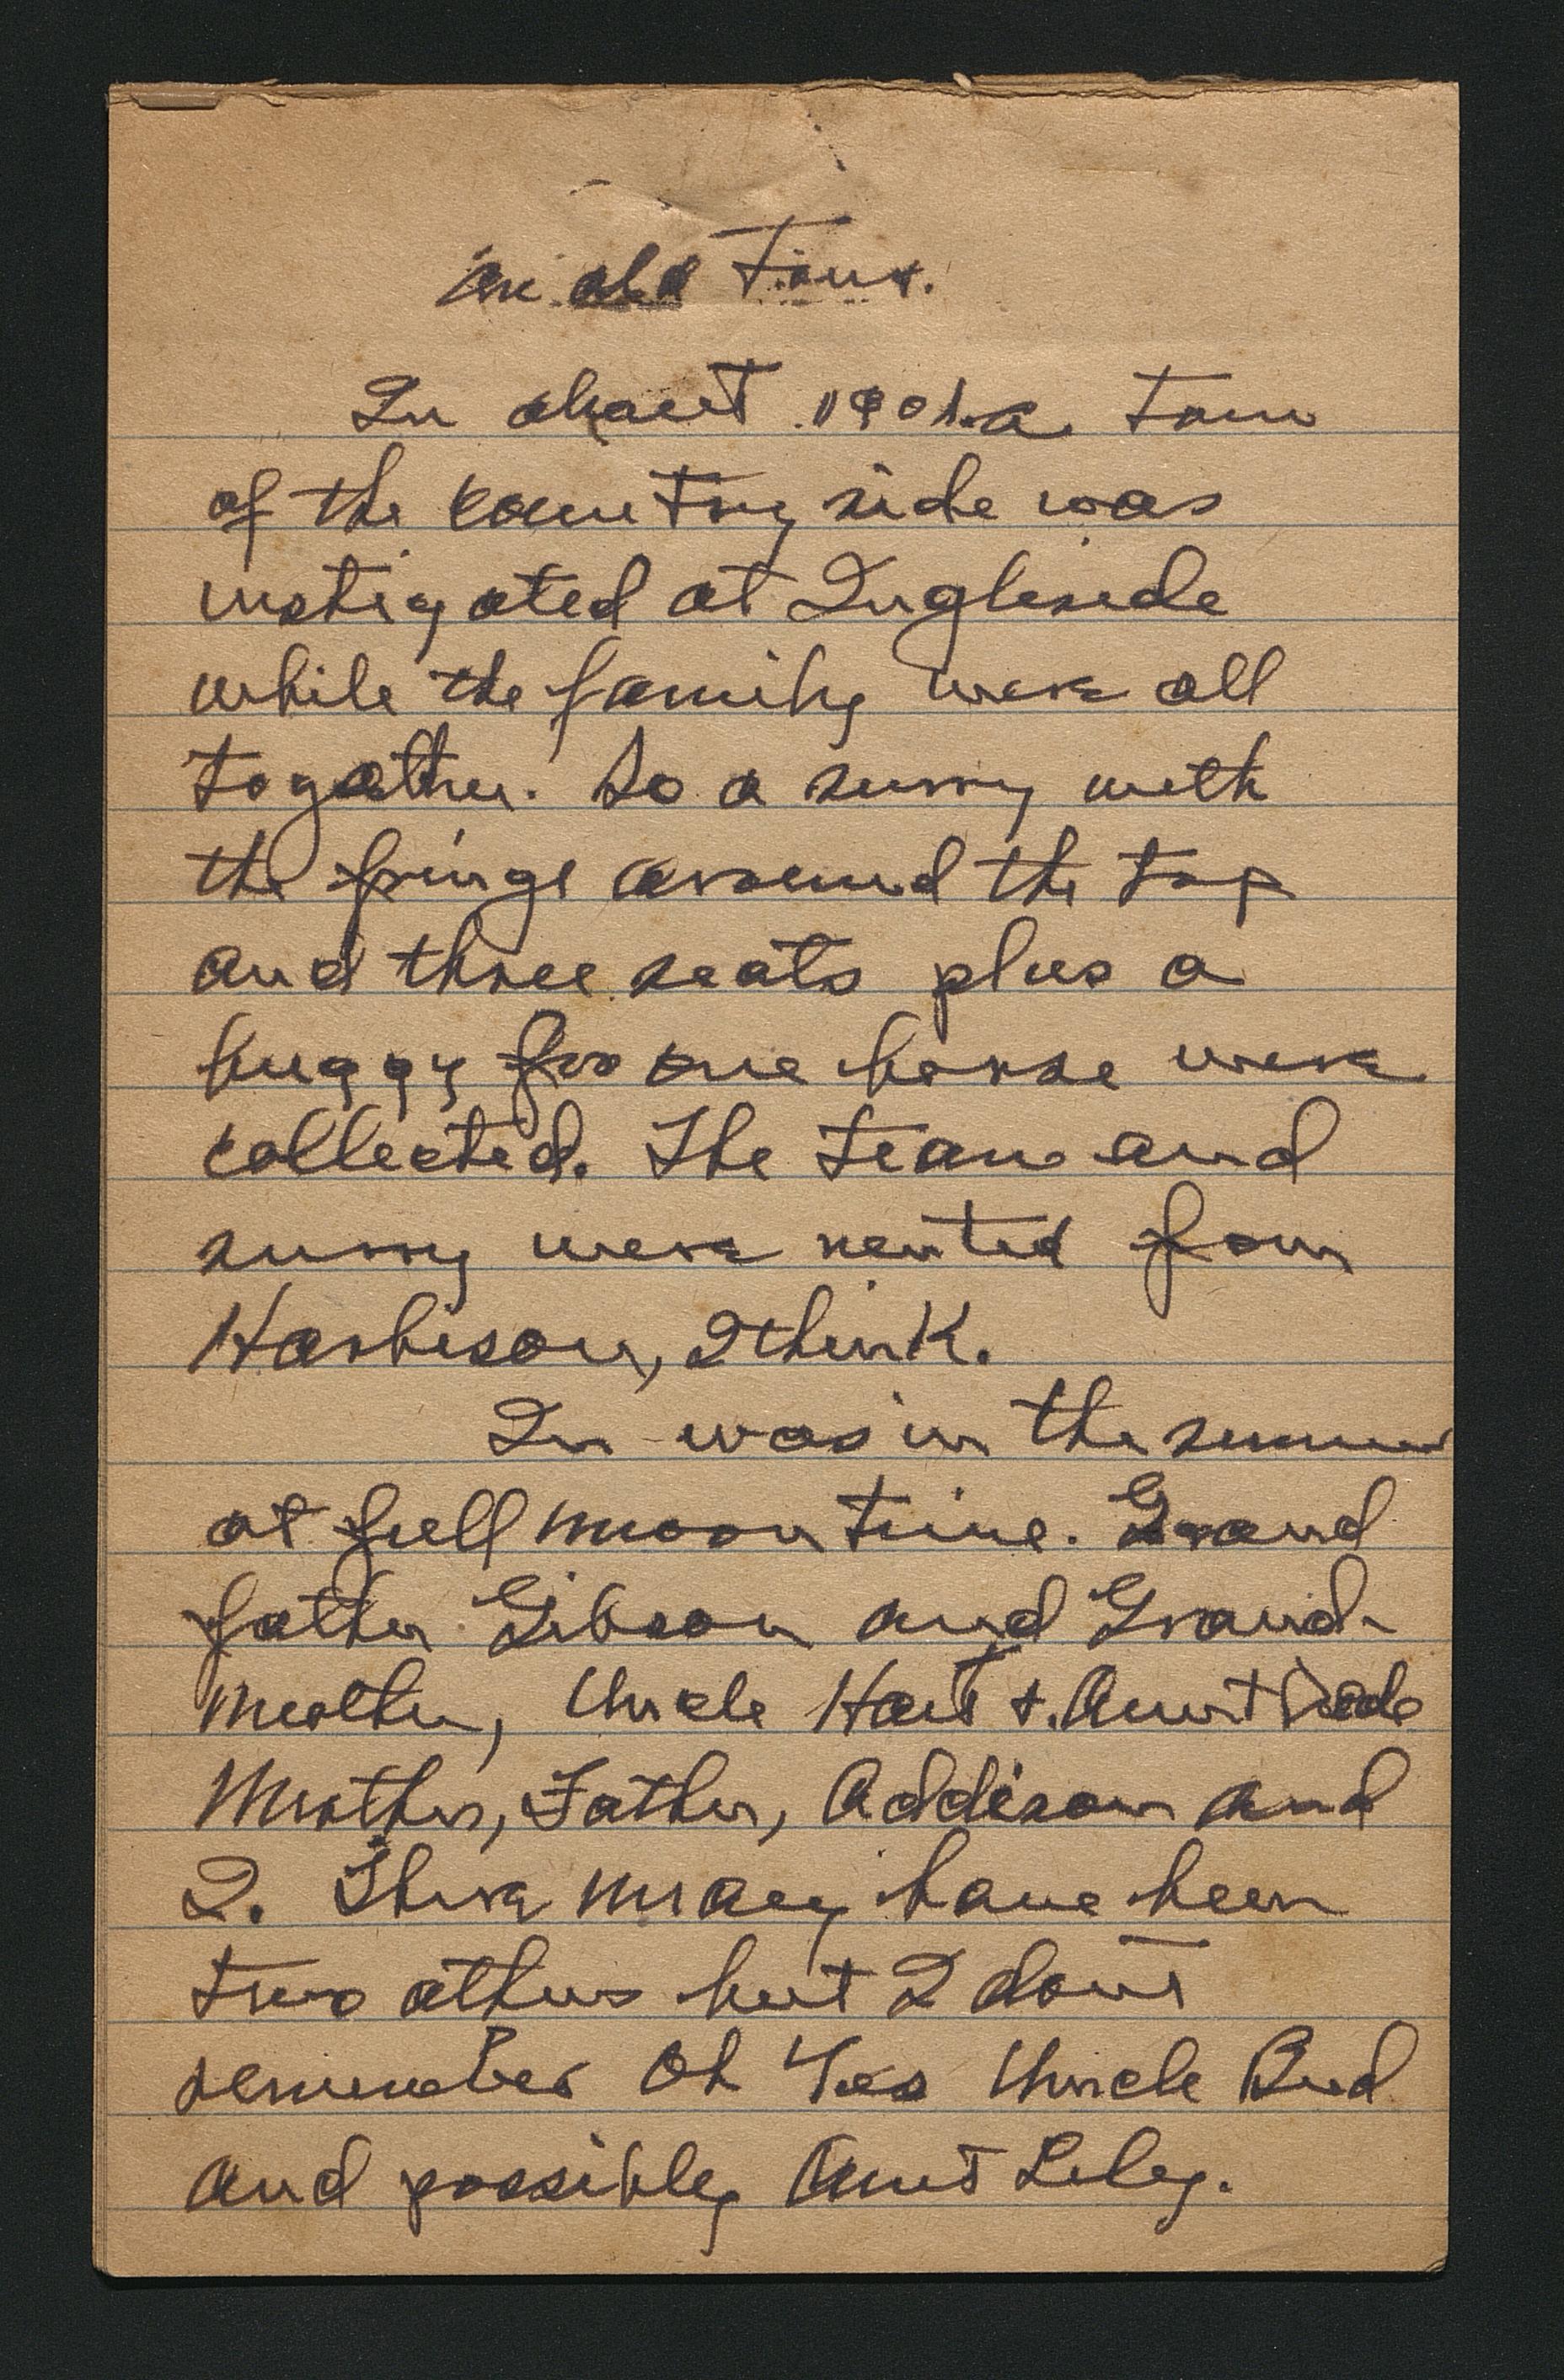 An old Tour.
In about 1901 a tour
of the country side was
instigated at Ingleside
while the family were all
together. So a surry with
the fringe around the top
and three seats plus a
buggy for one horse were
collected. The team and
surry were rented from
Harbison, I think.
In was in the summer
at full moon time. Grand
father Gibson and Grand-
mother, Uncle Hart & Aunt
Mother, Father, Addison and
I. There may have been
two others but I dont
remember Oh Yes Uncle Bud
and possibly Aunt Lily.